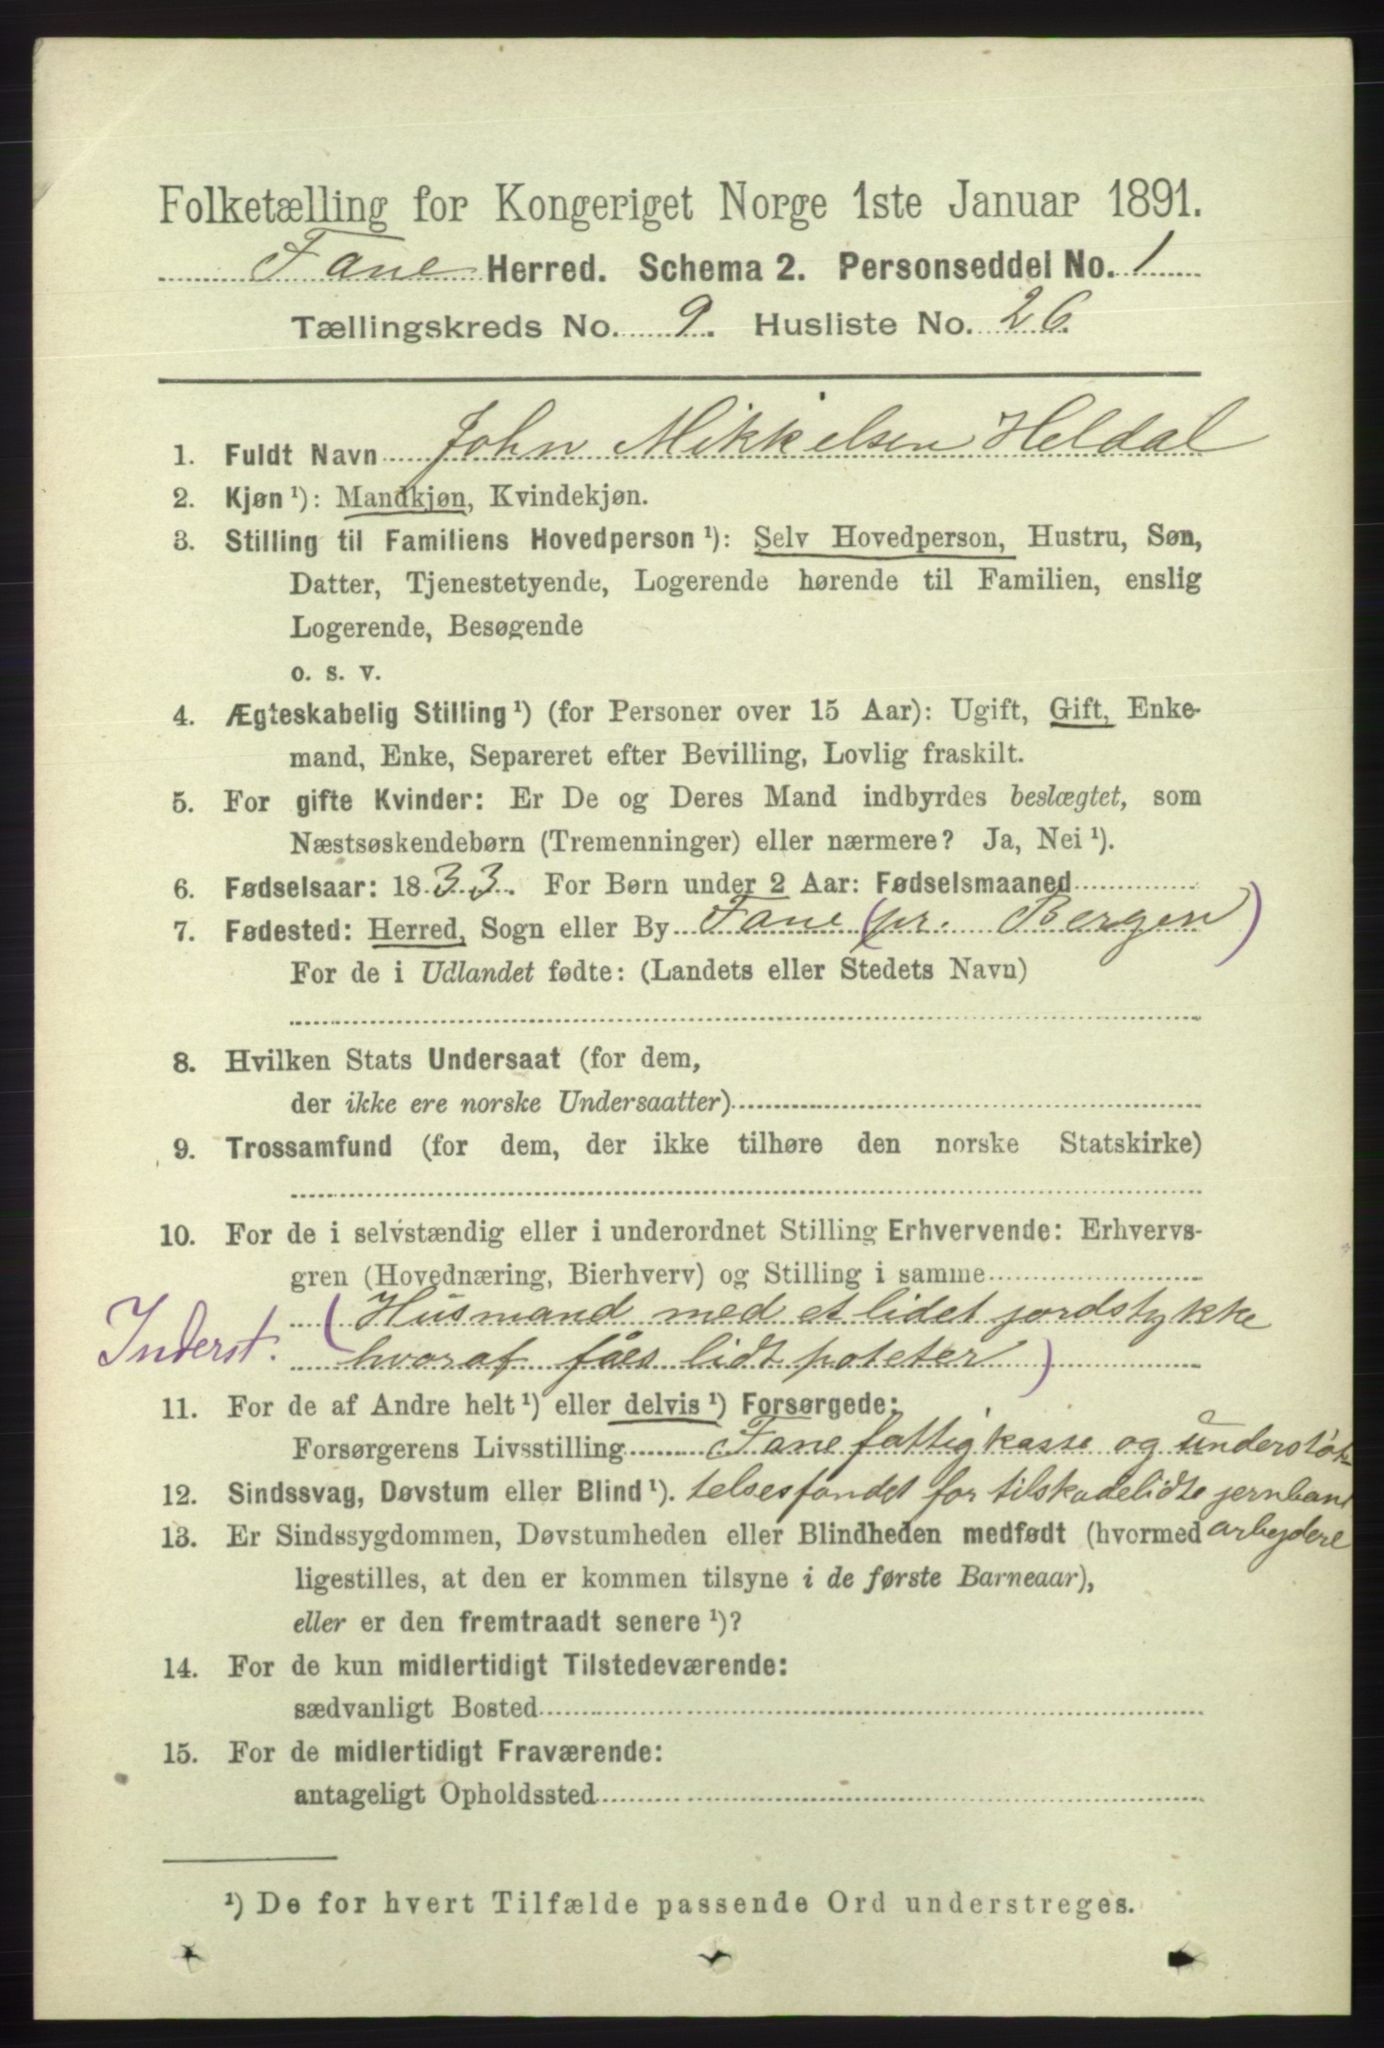 Folketælling for Kongeriget Norge 1ste Januar 1891.
Fane Herred. Schema 2. Personseddel No. 1
Tællingskreds No. 9. Husliste No. 26.
1. Fuldt Navn John Mikkelsen Heldal
2. Kjøn ¹): Mandkjøn, Kvindekjøn.
3. Stilling til Familiens Hovedperson ¹): Selv Hovedperson, Hustru, Søn,
Datter, Tjenestetyende, Logerende hørende til Familien, enslig
Logerende, Besøgende
o. s. v.
4. Ægteskabelig Stilling ¹) (for Personer over 15 Aar): Ugift, Gift, Enke-
mand, Enke, Separeret efter Bevilling, Lovlig fraskilt.
5. For gifte Kvinder: Er De og Deres Mand indbyrdes beslægtet, som
Næstsøskendebørn (Tremenninger) eller nærmere? Ja, Nei ¹).
6. Fødselsaar: 1833. For Børn under 2 Aar: Fødselsmaaned
7. Fødested: Herred, Sogn eller By Fane (pr. Bergen)
For de i Udlandet fødte: (Landets eller Stedets Navn)
8. Hvilken Stats Undersaat (for dem,
der ikke ere norske Undersaatter)
9. Trossamfund (for dem, der ikke tilhøre den norske Statskirke)
10. For de i selvstændig eller i underordnet Stilling Erhvervende: Erhvervs-
gren (Hovednæring, Bierhverv) og Stilling i samme
(Husmand med et lidet jordstykke
Inderst. hvoraf fåes lidt poteter)
11. For de af Andre helt ¹) eller delvis ¹) Forsørgede:
Forsørgerens Livsstilling Fane fattigkasse og understøt-
12. Sindssvag, Døvstum eller Blind ¹). telsesfondet for tilskadelidte jernban
13. Er Sindssygdommen, Døvstumheden eller Blindheden medfødt (hvormed arbejdere
ligestilles, at den er kommen tilsyne i de første Barneaar),
eller er den fremtraadt senere ¹)?
14. For de kun midlertidigt Tilstedeværende:
sædvanligt Bosted
15. For de midlertidigt Fraværende:
antageligt Opholdssted
¹) De for hvert Tilfælde passende Ord understreges.